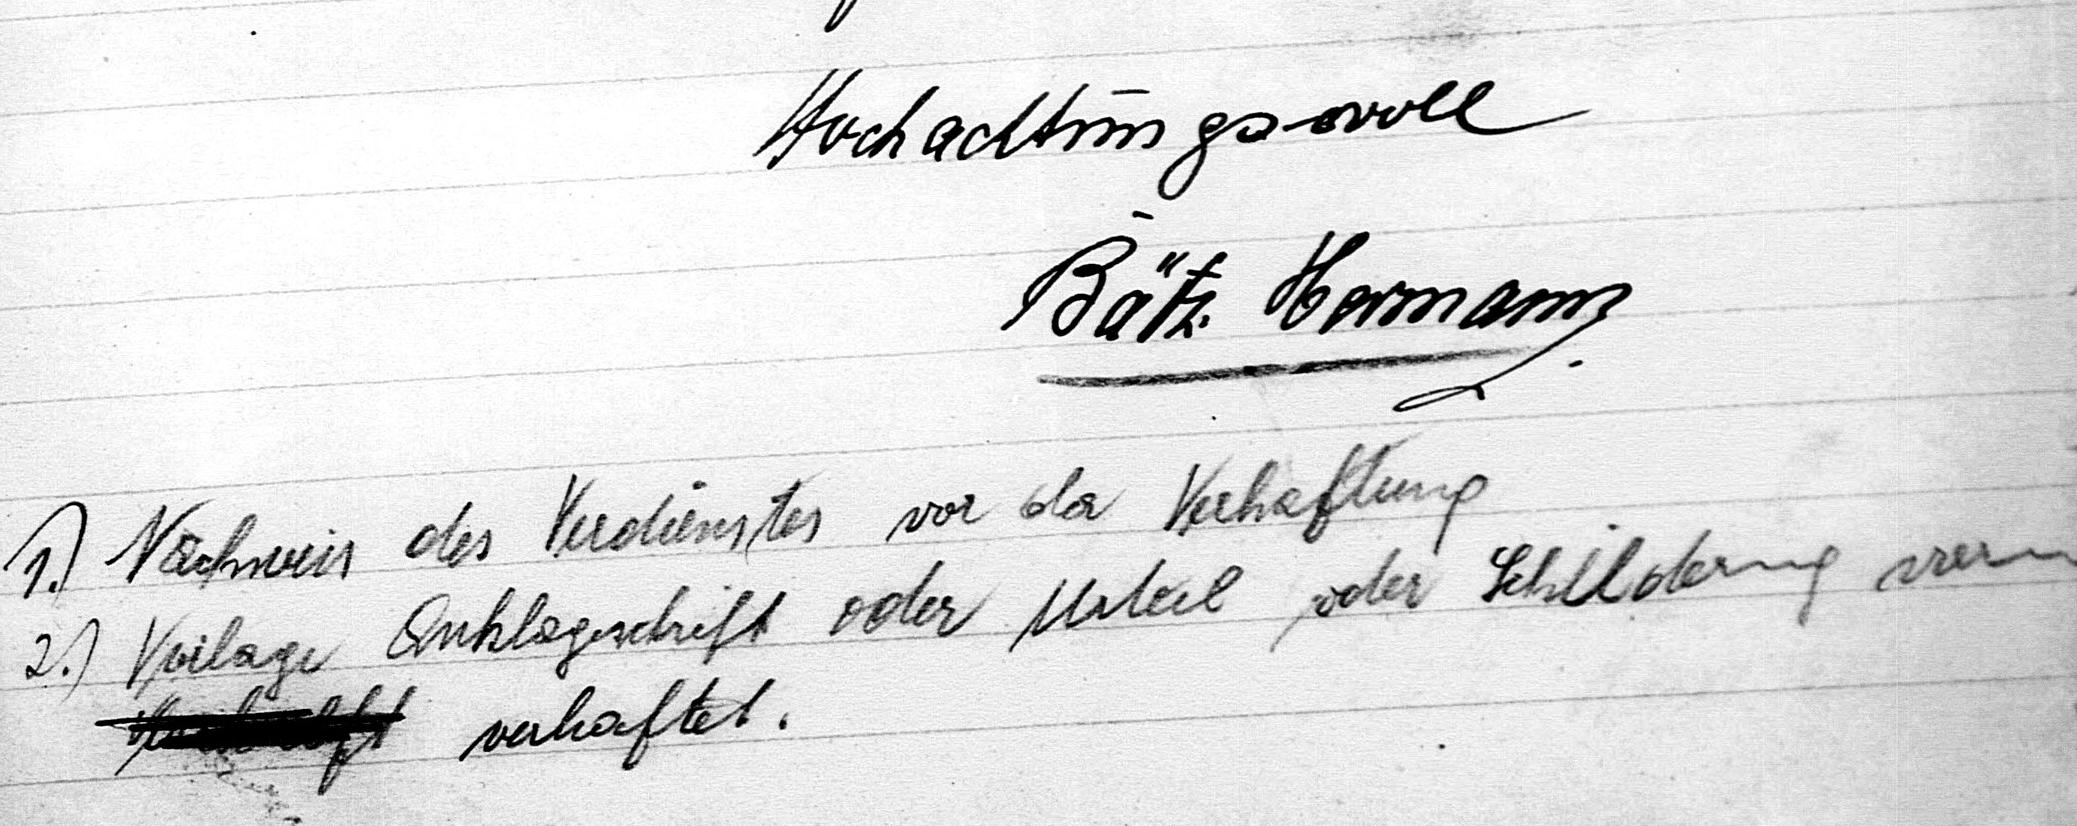 Hochachtungsvoll
Bätz Hermann
1.) Nachweis des Verdienstes vor der Verhaftung
2.) Vorlage Anklageschrift oder Urteil oder Schilderung
verhaftet.